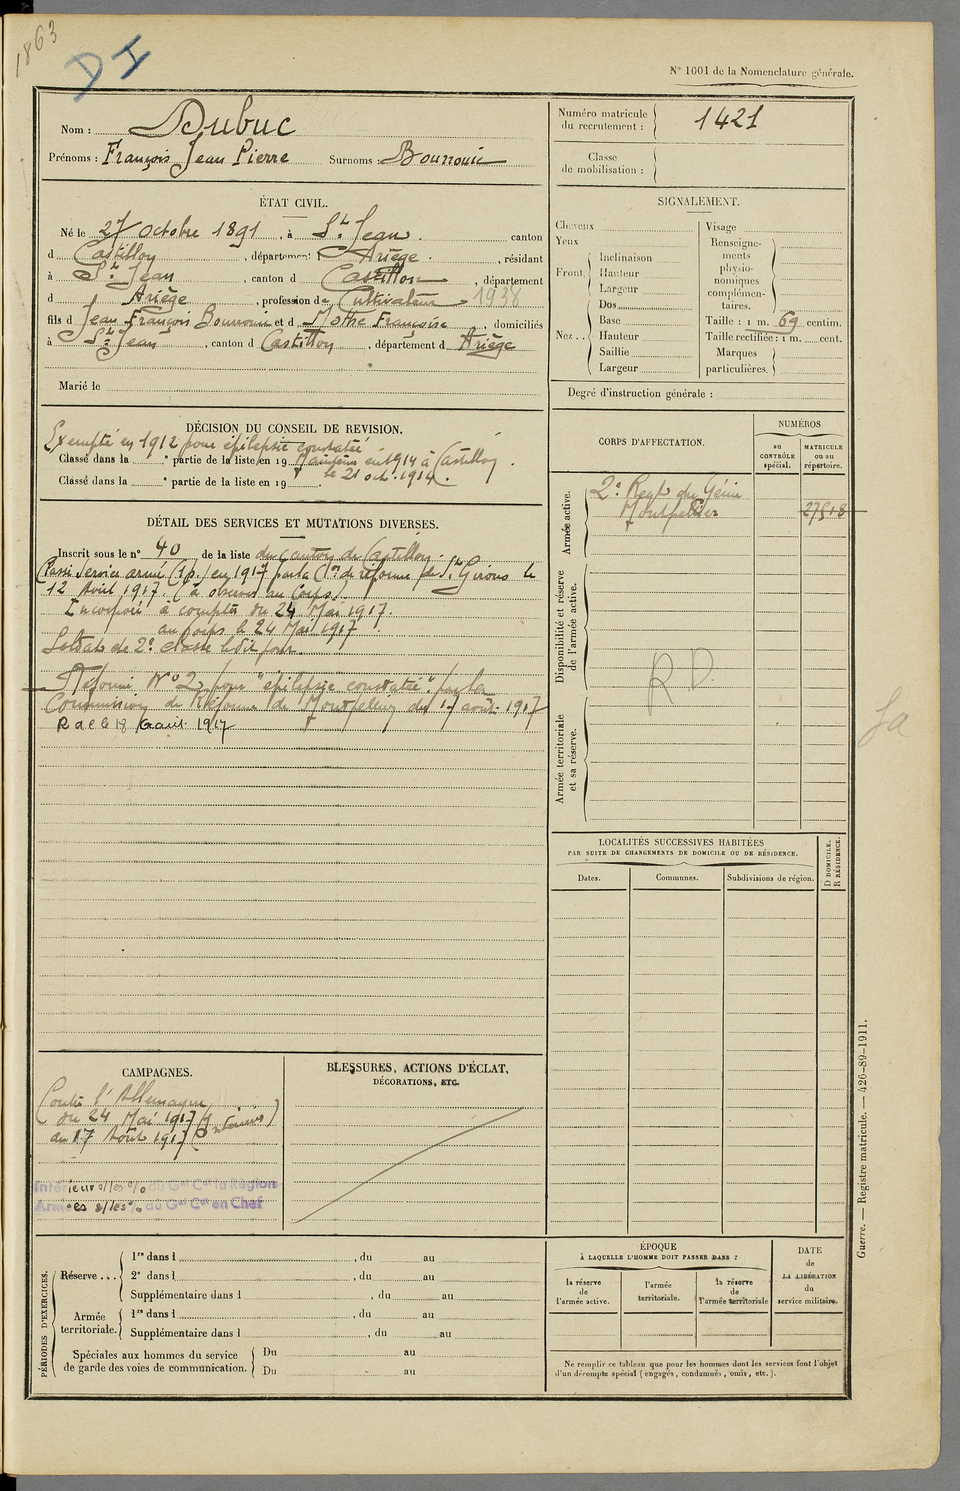 1863
DI
N° 1001 de la Nomenclature générale.
Nom : Dubuc
Prénoms : François Jean Pierre Surnoms : Bourrouic
Numéro matricule du recrutement : 1421
Classe de mobilisation :
ÉTAT CIVIL.
Né le 27 octobre 1891, à St Jean. canton
d Castillon, département d Ariège. , résidant
à St Jean, canton d Castillon, département
d Ariège, profession de Cultivateur 1938
fils d Jean François et d Françoise, domiciliés
à St Jean, canton d Castillon, département d Ariège
Marié le
SIGNALEMENT.
Cheveux
Yeux
Front. Inclinaison
Hauteur
Largeur
Nez .. Dos
Base
Hauteur
Saillie
Largeur
Visage
Renseigne-
ments
physio-
nomiques
complémen-
taires.
Taille : 1 m. 69 centim.
Taille rectifiée : 1 m. cent.
Marques
particulières.
Degré d'instruction générale :
DÉCISION DU CONSEIL DE REVISION.
Exempté en 1912 pour épilepsie constatée
Classé dans la e partie de la liste en 19 Maintenu en 1914 à Castillon.
Classé dans la e partie de la liste en 19 le 21 oct. 1914.
DÉTAIL DES SERVICES ET MUTATIONS DIVERSES.
Inscrit sous le n° 40 de la liste du canton de Castillon.
Passé service armé en 1917 par la Con de réforme de St Girons le
12 1917. (à observer au Corps).
Incorporé à compter du 24 Mai 1917.
au corps le 24 Mai 1917.
Soldat de 2e classe ledit jour
Réformé N° 2 pour "épilepsie constatée" par la
Commission de Réforme de Montpellier du 17 août 1917
R d c le 18 août 1917
CORPS D'AFFECTATION.
NUMÉROS
au CONTRÔLE spécial.
MATRICULE ou au répertoire.
Armée active.
2e Regt du Génie
Montpellier
Disponibilité et réserve de l'armée active.
R D
Armée territoriale et sa réserve.
LOCALITÉS SUCCESSIVES HABITÉES
PAR SUITE DE CHANGEMENTS DE DOMICILE OU DE RÉSIDENCE.
Dates.
Communes.
Subdivisions de région.
D DOMICILE.
R RÉSIDENCE.
CAMPAGNES.
Contre l'Allemagne
du 24 Mai 1917 (Intérieur)
au 17 Août 1917
Intérieur s/les o/o du Gal Cdt la Région
Armées s/les o/o du Gal Cdt en Chef
BLESSURES, ACTIONS D'ÉCLAT,
DÉCORATIONS, ETC.
PÉRIODES D'EXERCICES.
Réserve ... 1re dans l , du au
2e dans l , du au
Supplémentaire dans l , du au
Armée territoriale. 1re dans l , du au
Supplémentaire dans l , du au
Spéciales aux hommes du service
de garde des voies de communication. Du au
Du au
ÉPOQUE
À LAQUELLE L'HOMME DOIT PASSER DANS :
la réserve de l'armée active.
l'armée territoriale.
la réserve de l'armée territoriale
DATE de LA LIBÉRATION du service militaire.
Ne remplir ce tableau que pour les hommes dont les services font l'objet
d'un décompte spécial (engagés, condamnés, omis, etc.).
Guerre. — Registre matricule. — 426-89-1911.